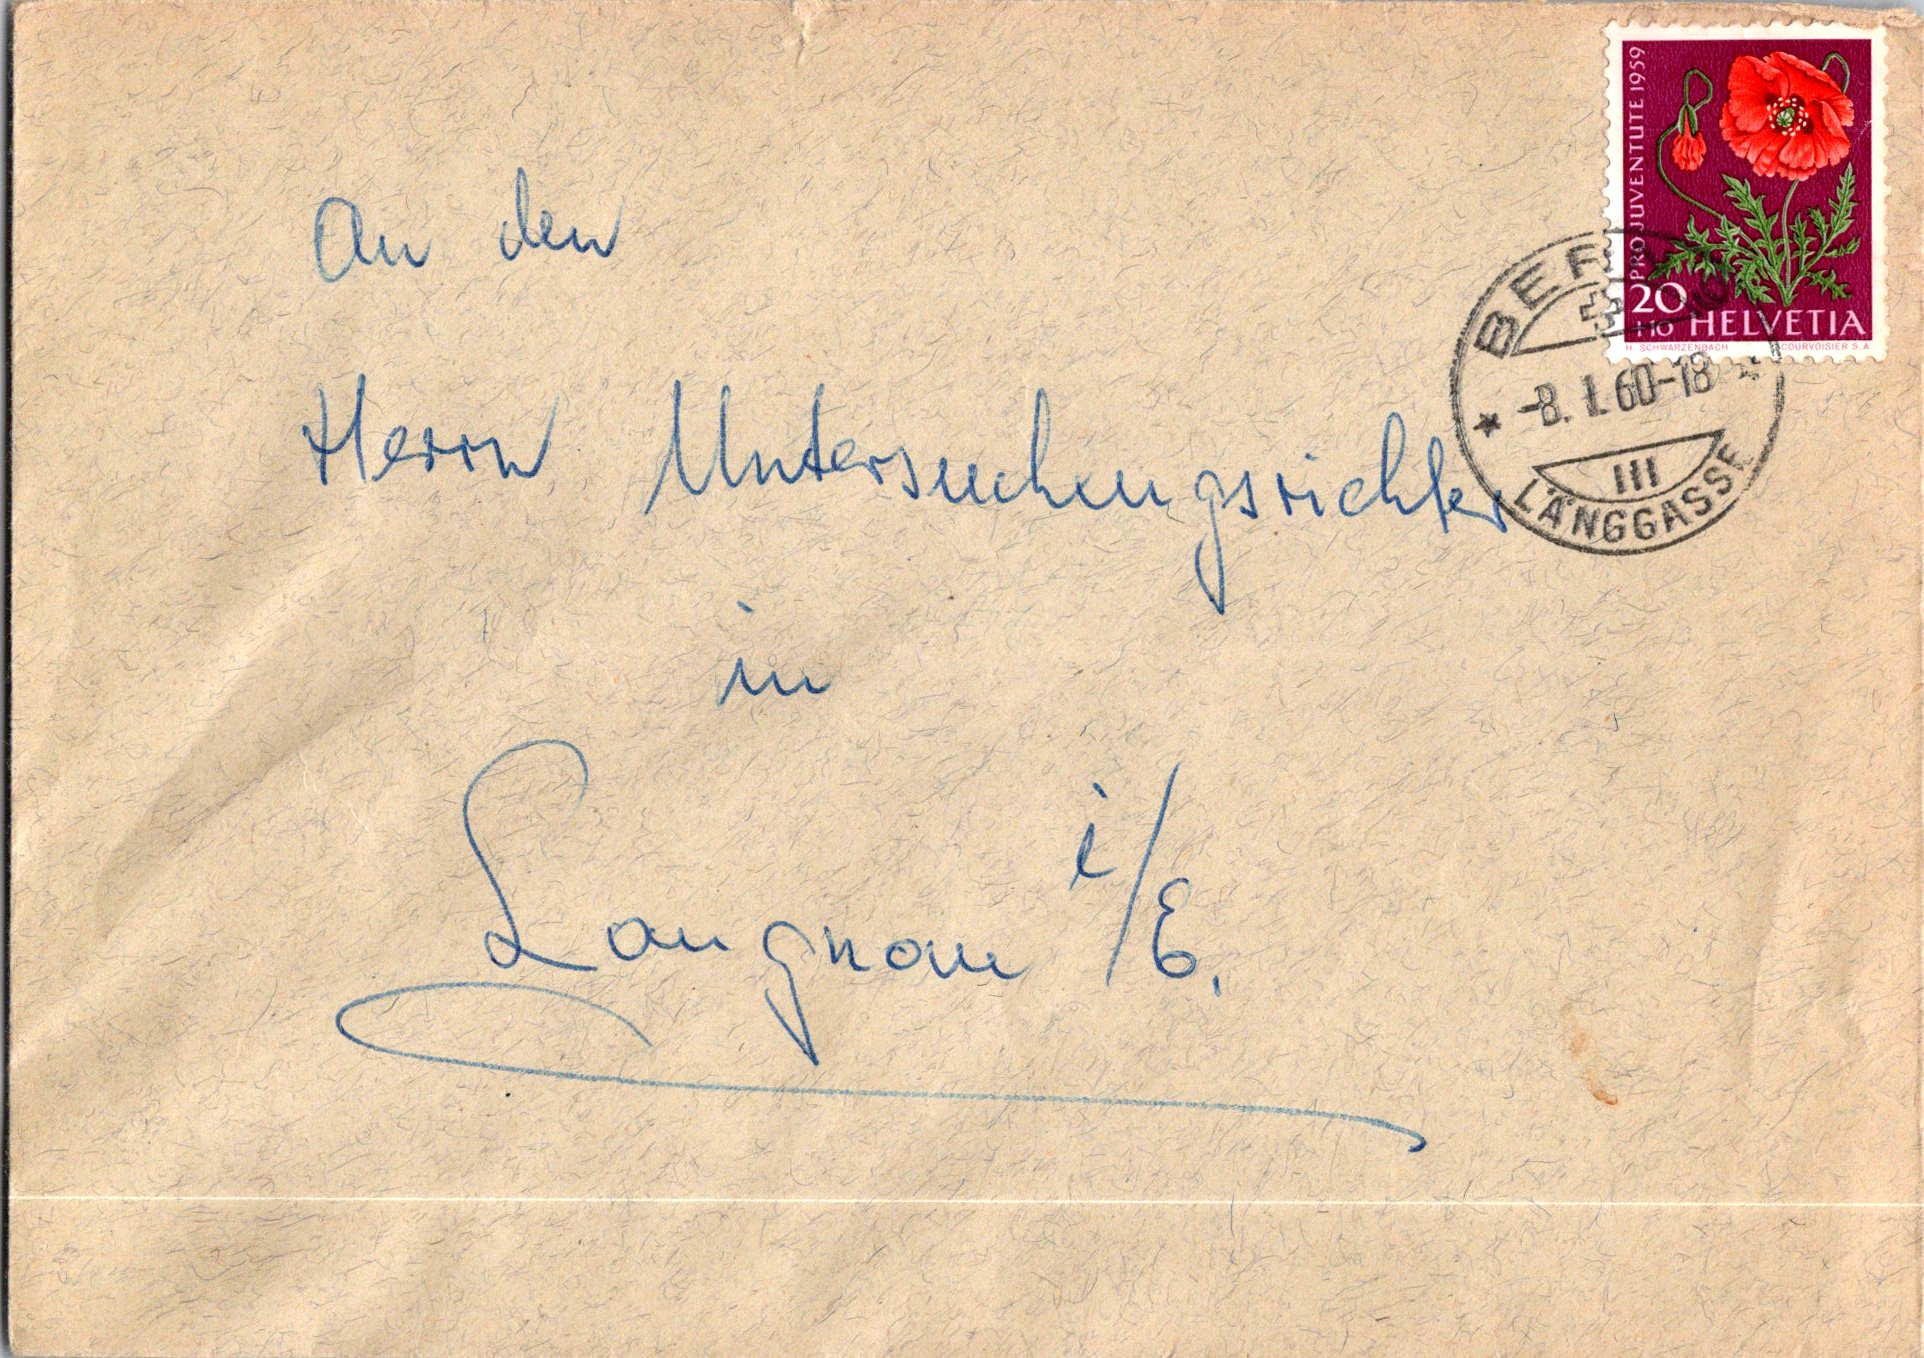 PRO JUVENTUTE 1959
20
+10 HELVETIA
H. SCHWARZENBACH COURVOISIER S.A.
BERN
-8. I. 60-18
III
LÄNGGASSE
An den
Herrn Untersuchungsrichter
in
Langnau i/E.